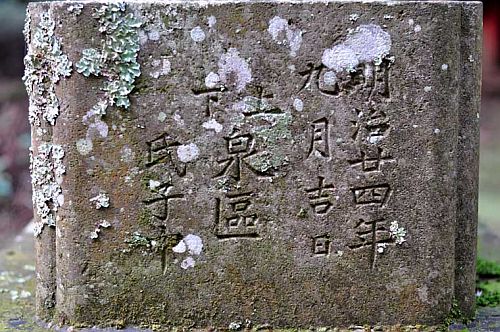 明治廿四年
九月吉日
上下泉區
氏子中